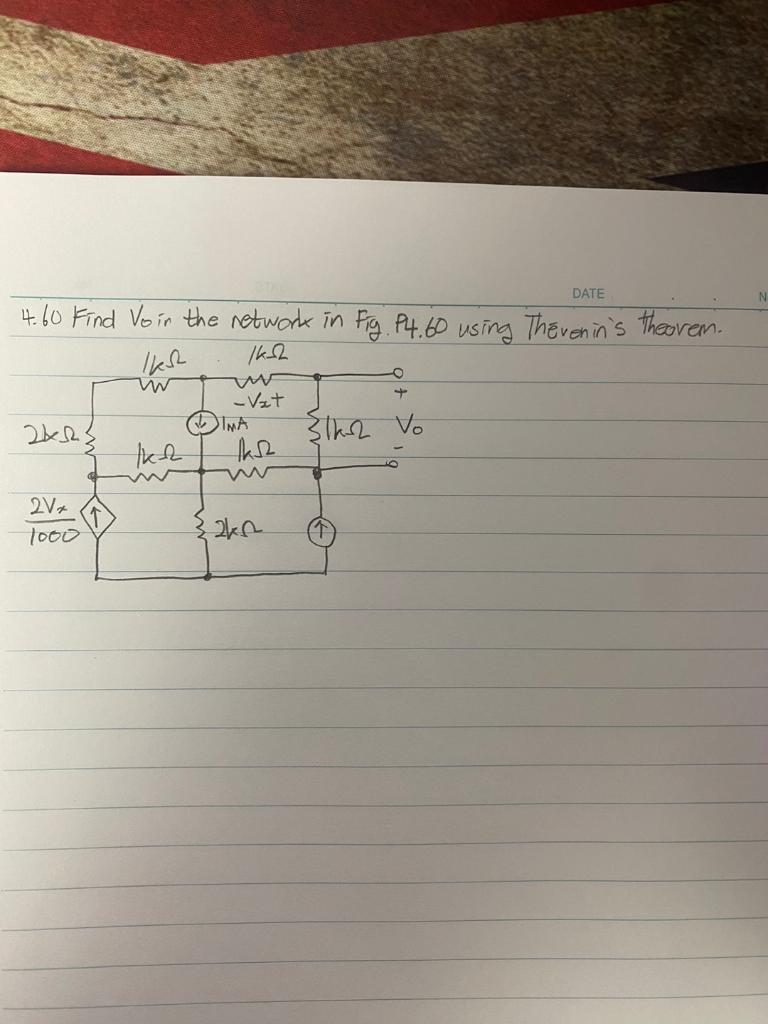 DATE
N
4.60 Find Vo in the network in Fig. P4.60 using Thevenin's theorem.
1kΩ 1kΩ
-Vx+
2kΩ
1mA
1kΩ
Vo
+
-
1kΩ 1kΩ
2Vx
1000
2kΩ